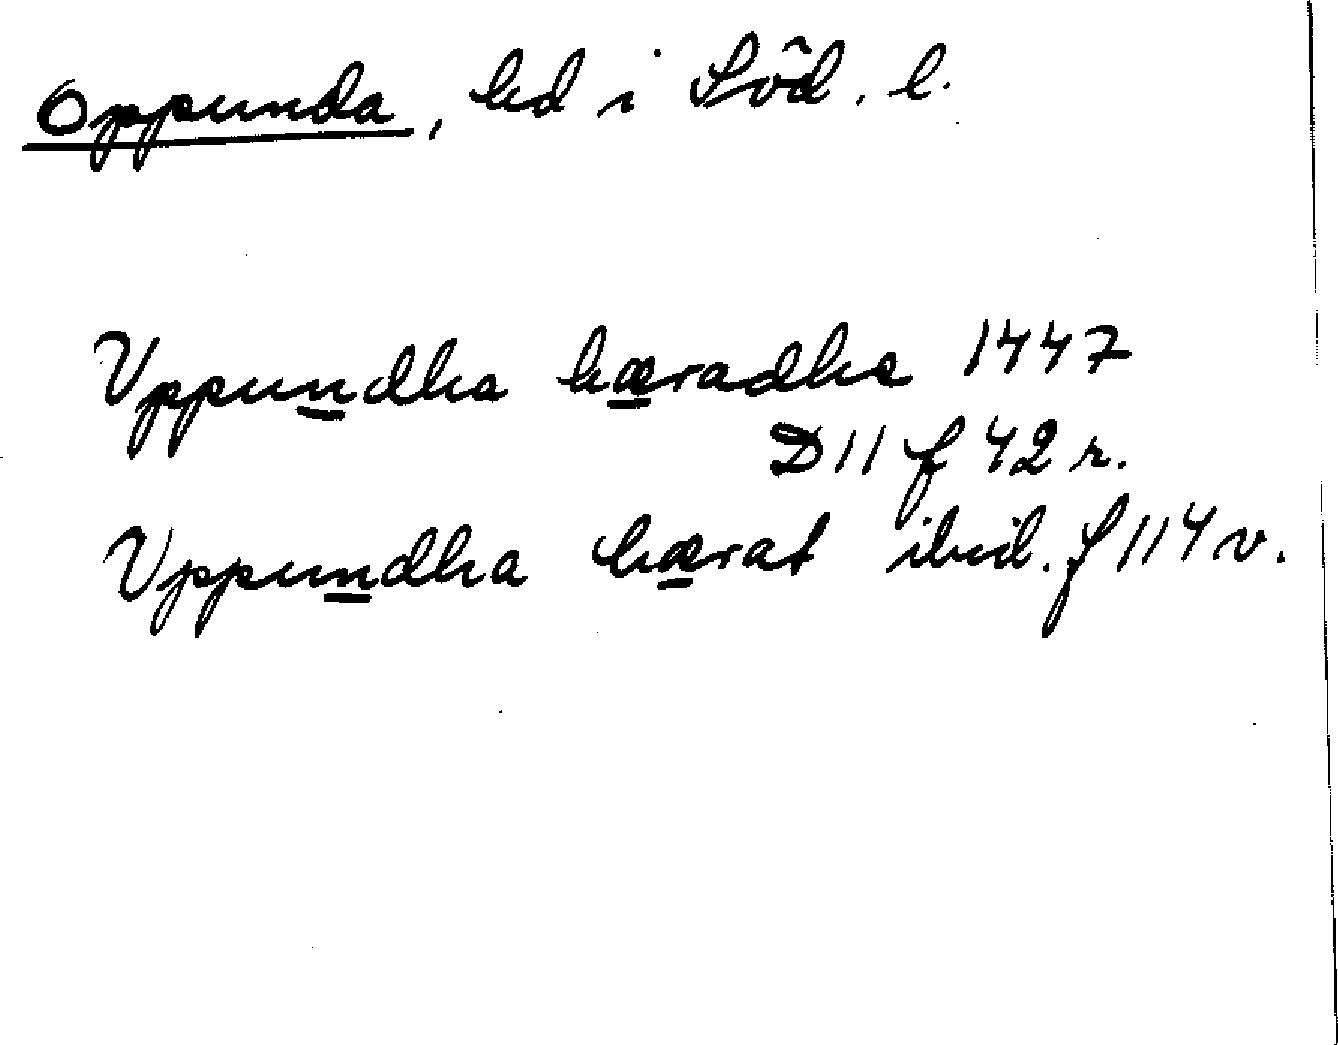 Oppunda, hd i Söd. l.
Vppundha hæradhe 1447
D 11 f 42 r.
Vppundha hærat ibid. f 114 v.